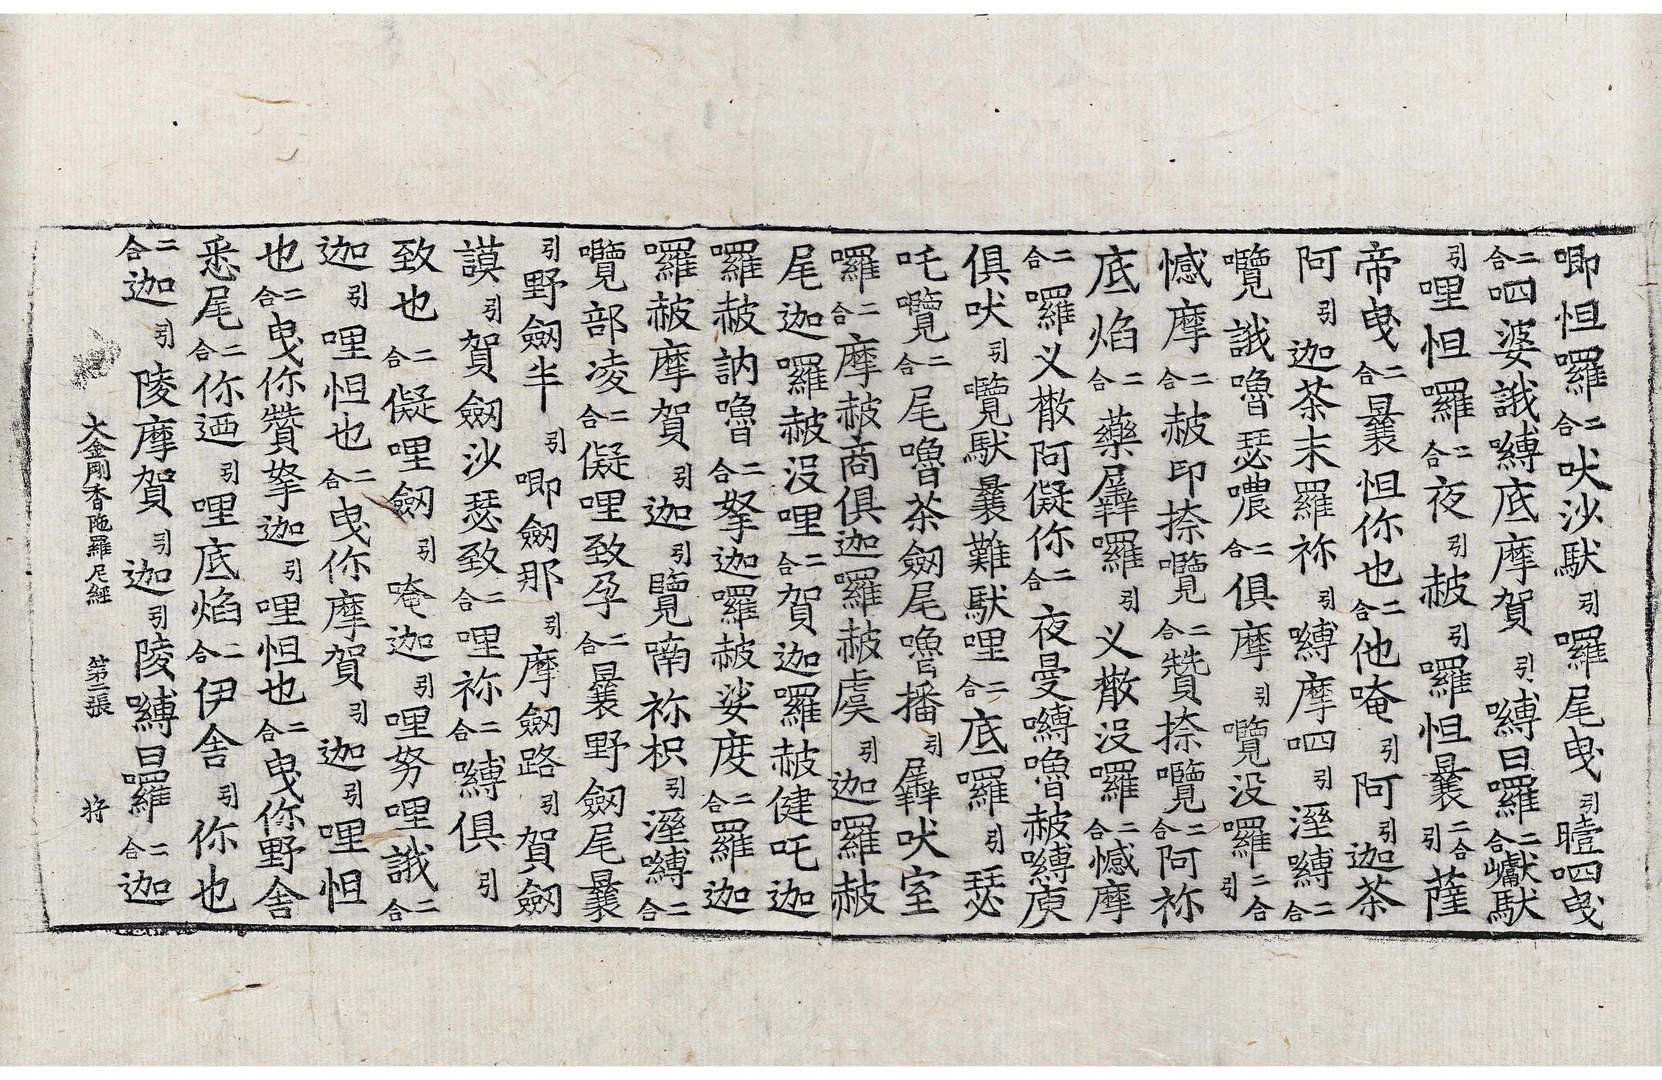 唧怛囉二合吠沙馱引囉尾曳引曀呬曳
二合呬婆誐縛底摩賀引縛日囉二合巘馱
引哩怛囉二合夜引赧引囉怛曩二合引薩
帝曳二合曩怛你也二合他唵引阿引迦茶
阿引迦茶末羅祢引縛摩呬引溼縛二合
囕誐嚕瑟儂二合俱摩引囕没囉二合引
憾摩二合赧印捺囕二合贊捺囕二合阿祢
底焰二合藥犀羅引义散没囉二合憾摩
二合囉义散阿儗你二合夜曼嚩嚕赧縛庾
俱吠引囕馱曩難馱哩二合底囉引瑟
吒囕二合尾嚕茶劒尾嚕播引犀吠室
囉二合摩赧商俱迦羅赧虞引迦囉赧
尾迦囉赧没哩二合賀迦囉赧健吒迦
囉赧訥嚕二合拏迦囉赧娑度二合羅迦
囉赧摩賀引迦引囕喃祢枳引溼縛二合
囕部凌二合儗哩致孕二合曩野劒尾曩
引野劒半引唧劒那引摩劒路引賀劒
謨引賀劒沙瑟致二合哩祢二合嚩俱引
致也二合儗哩劒引唵迦引哩努哩誐二合
迦引哩怛也二合曳你摩賀引迦引哩怛
也二合曳你贊拏迦引哩怛也二合曳你野舍
悉尾二合你迺引哩底焰二合伊舍引你也
二合迦引陵摩賀引迦引陵嚩日羅二合迦
大金剛香陁羅尼經　第二張　㝊